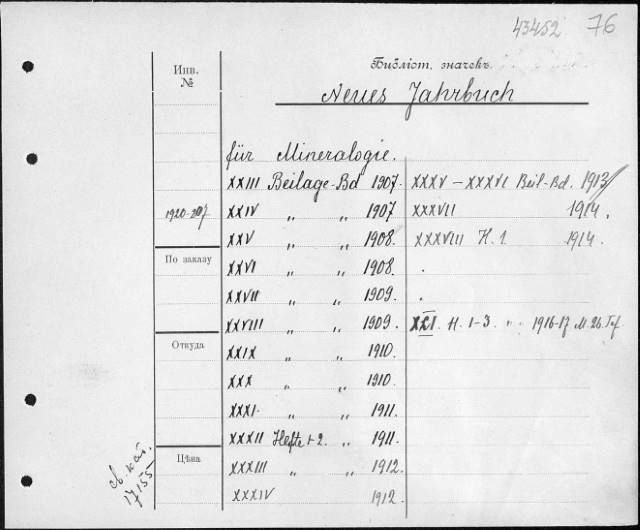 43452 76
Инв.
№
Библіот. значекъ
Neues Jahrbuch
für Mineralogie.
XXIII Beilage-Bd 1907.
1920-207
XXIV " " 1907
XXV " " 1908.
По заказу
XXVI " " 1908.
XXVII " " 1909.
XXVIII " " 1909.
Откуда
XXIX " " 1910.
XXX " " 1910.
XXXI " " 1911.
XXXII Hefte 1-2. " 1911.
Цѣна
XXXIII " " 1912.
XXXIV 1912
XXXV – XXXVI Beil-Bd. 1913
XXXVII 1914.
XXXVIII H. 1. 1914.
XLI. H. 1-3. " " 1916-17 M. 26. Taf.
св. кат.
17155